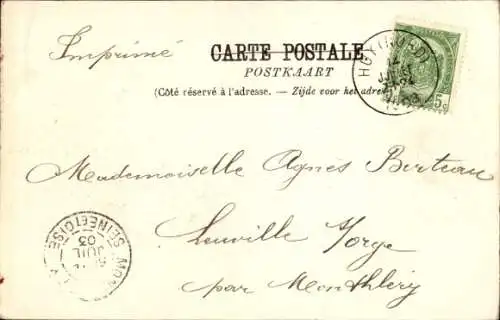 Imprimé
CARTE POSTALE
POSTKAART
(Côté réservé à l'adresse. — Zijde voor het adres
HUY (NORD)
5c
Mademoiselle Agnès Berteau
Leuville s/Orge
par Montlhéry
SEINE ET OISE
JUIL
03